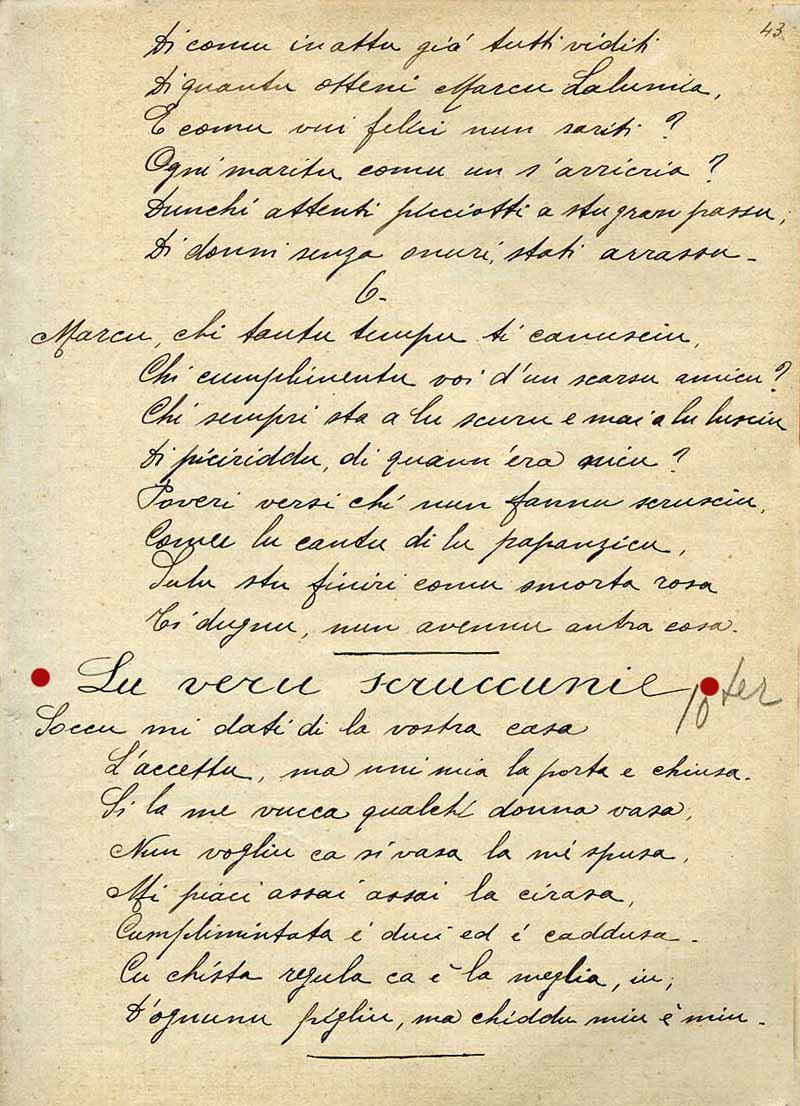 43
Di comu in attu giá tutti viditi
Di quantu otteni Marcu Lalumia,
E comu vui felici nun sariti?
Ogni maritu comu un s'arricria?
Dunchi attenti picciotti a stu gran passu,
Di donni senza onuri, stati arrassu.
6.
Marcu, chi tantu tempu ti canusciu,
Chi cumplimentu voi d'un scarsu amicu?
Chi sempri sta a lu scuru e mai a lu lusciu
Di piciriddu, di quann'era nicu?
Poveri versi chi nun fannu scrusciu,
Comu lu cantu di lu papanzicu,
Sulu stu finiri comu smorta rosa
Ti dugnu, nun avennu autra cosa.
Lu veru scruccuni 10 ter
Soccu mi dati di la vostra casa
L'accettu, ma uni mia la porta e chiusa.
Si la me vucca qualchi donna vasa,
Nun vogliu ca si vasa la mé spusa,
Mi piaci assai assai la cirasa,
Cumplimintata é duci ed é caddusa.
Cu chista regula ca è la meglia, iu,
D'ognunu pigliu, ma chiddu miu è miu.